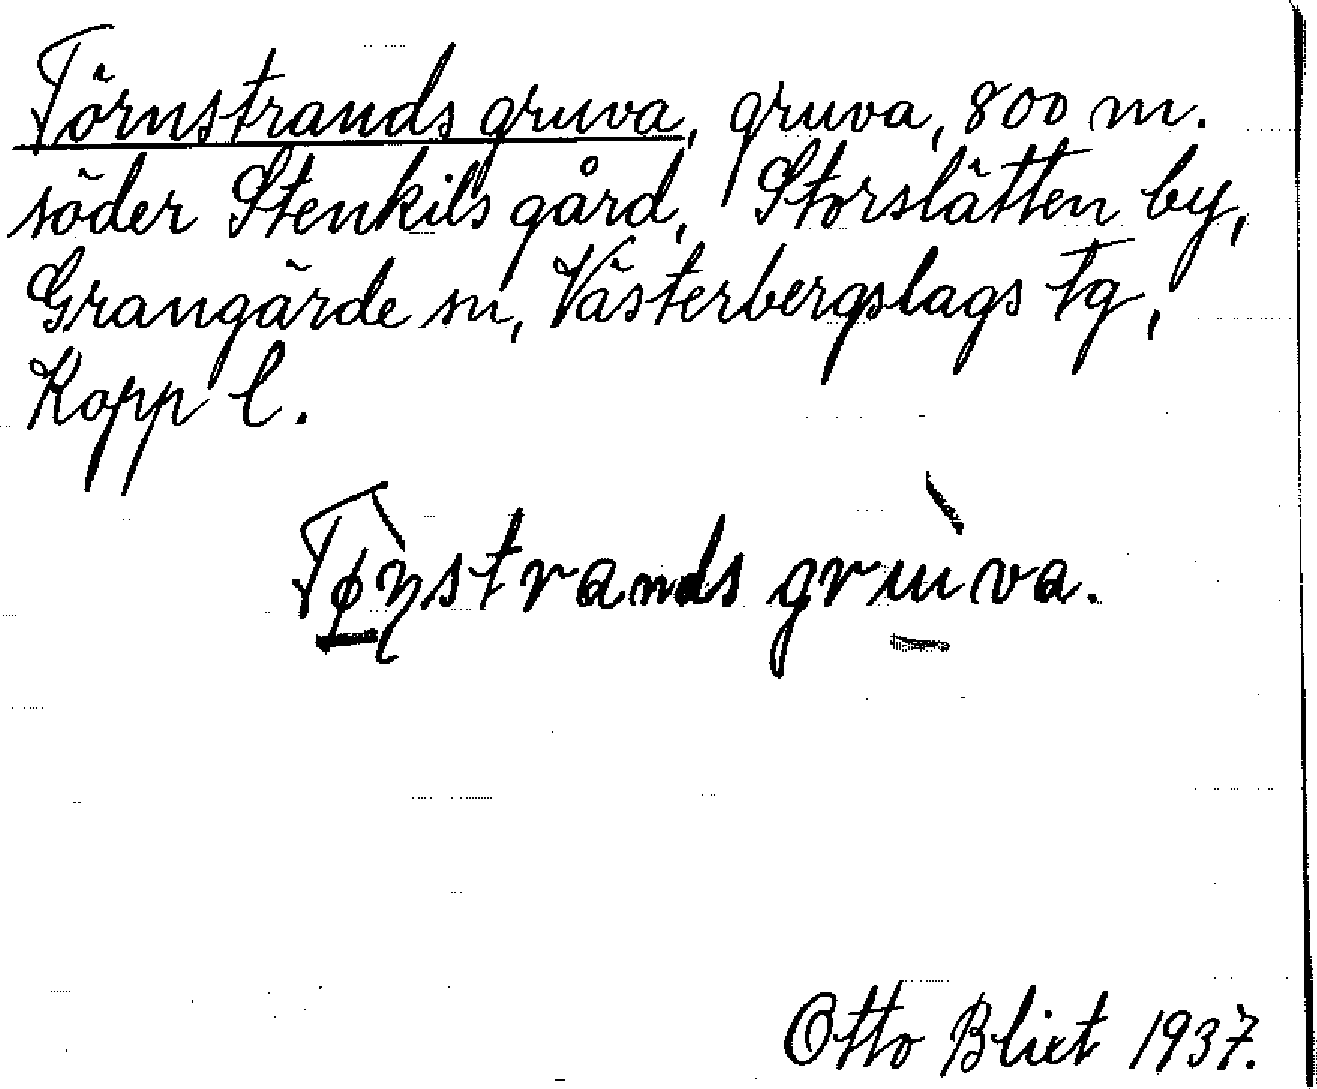 Törnstrands gruva, gruva, 800 m.
söder Stenkils gård, Storslätten by,
Grangärde sn, Västerbergslags tg,
Kopp l.
Tø̀ɳstrands grùva.
Otto Blixt 1937.